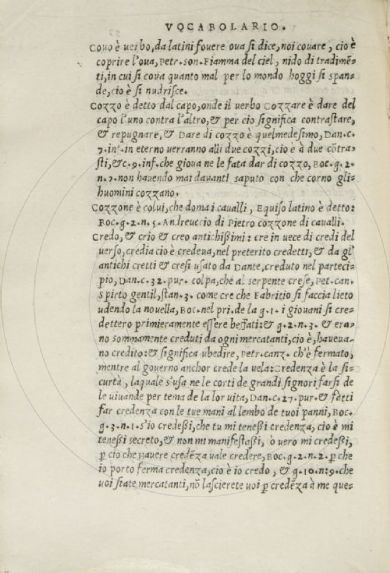 VOCABOLARIO.
Covo è verbo, da latini fouere oua si dice, noi couare, cio è
coprire l'oua, Petr. son. Fiamma del ciel, nido di tradimẽ-
ti, in cui si coua quanto mal per lo mondo hoggi si span-
de, cio è si nudrisce.
Cozzo è detto dal capo, onde il uerbo Cozzare è dare del
capo l'uno contra l'altro, & per cio significa contrastare,
& repugnare, & Dare di cozzo è quel medesimo, Dan. c.
7. inf. in eterno uerranno alli due cozzi, cio è à due cõtra-
sti, & c. 9. inf. che gioua ne le fata dar di cozzo, Boc. g. 2.
n. 7. non hauendo mai dauanti saputo con che corno gli-
huomini cozzano.
Cozzone è colui, che doma i caualli, Equiso latino è detto:
Boc. g. 2. n. 5. Andreuccio di Pietro cozzone di caualli.
Credo, & crio & creo antichissimi: cre in uece di credi del
uerso, credia cio è credeua, nel preterito credetti, & da gl'
antichi cretti & cresi usato da Dante, creduto nel parteci-
pio, Dan. c. 32. pur. colpa, che al serpente crese, Pet. can.
Spirto gentil, stan. 3. come cre che Fabritio si faccia lieto
udendo la nouella, Boc. nel pri. de la g. 1. i giouani si cre-
dettero primieramente essere beffati: & g. 2. n. 3. & era-
no sommamente creduti da ogni mercatanti, cio è, haueua-
no credito: & significa ubedire, Petr. canz. ch'è fermato,
mentre al gouerno anchor crede la uela: Credenza è la si-
curtà, laquale s'usa ne le corti de grandi signori farsi de
le uiuande per tema de la lor uita, Dan. c. 27. pur. & fatti
far credenza con le tue mani al lembo de tuoi panni, Boc.
g. 3. n. 1. s'io credessi, che tu mi tenessi credenza, cio è mi
tenessi secreto, & non mi manifestassi, ò uero mi credessi,
ꝑ cio che hauere credẽza uale credere, Boc. g. 2. n. 2. ꝑ che
io porto ferma credenza, cio è io credo, & g. 10. n. 9. che
uoi siate mercatanti, nõ lascierete uoi ꝑ credẽza à me ques-